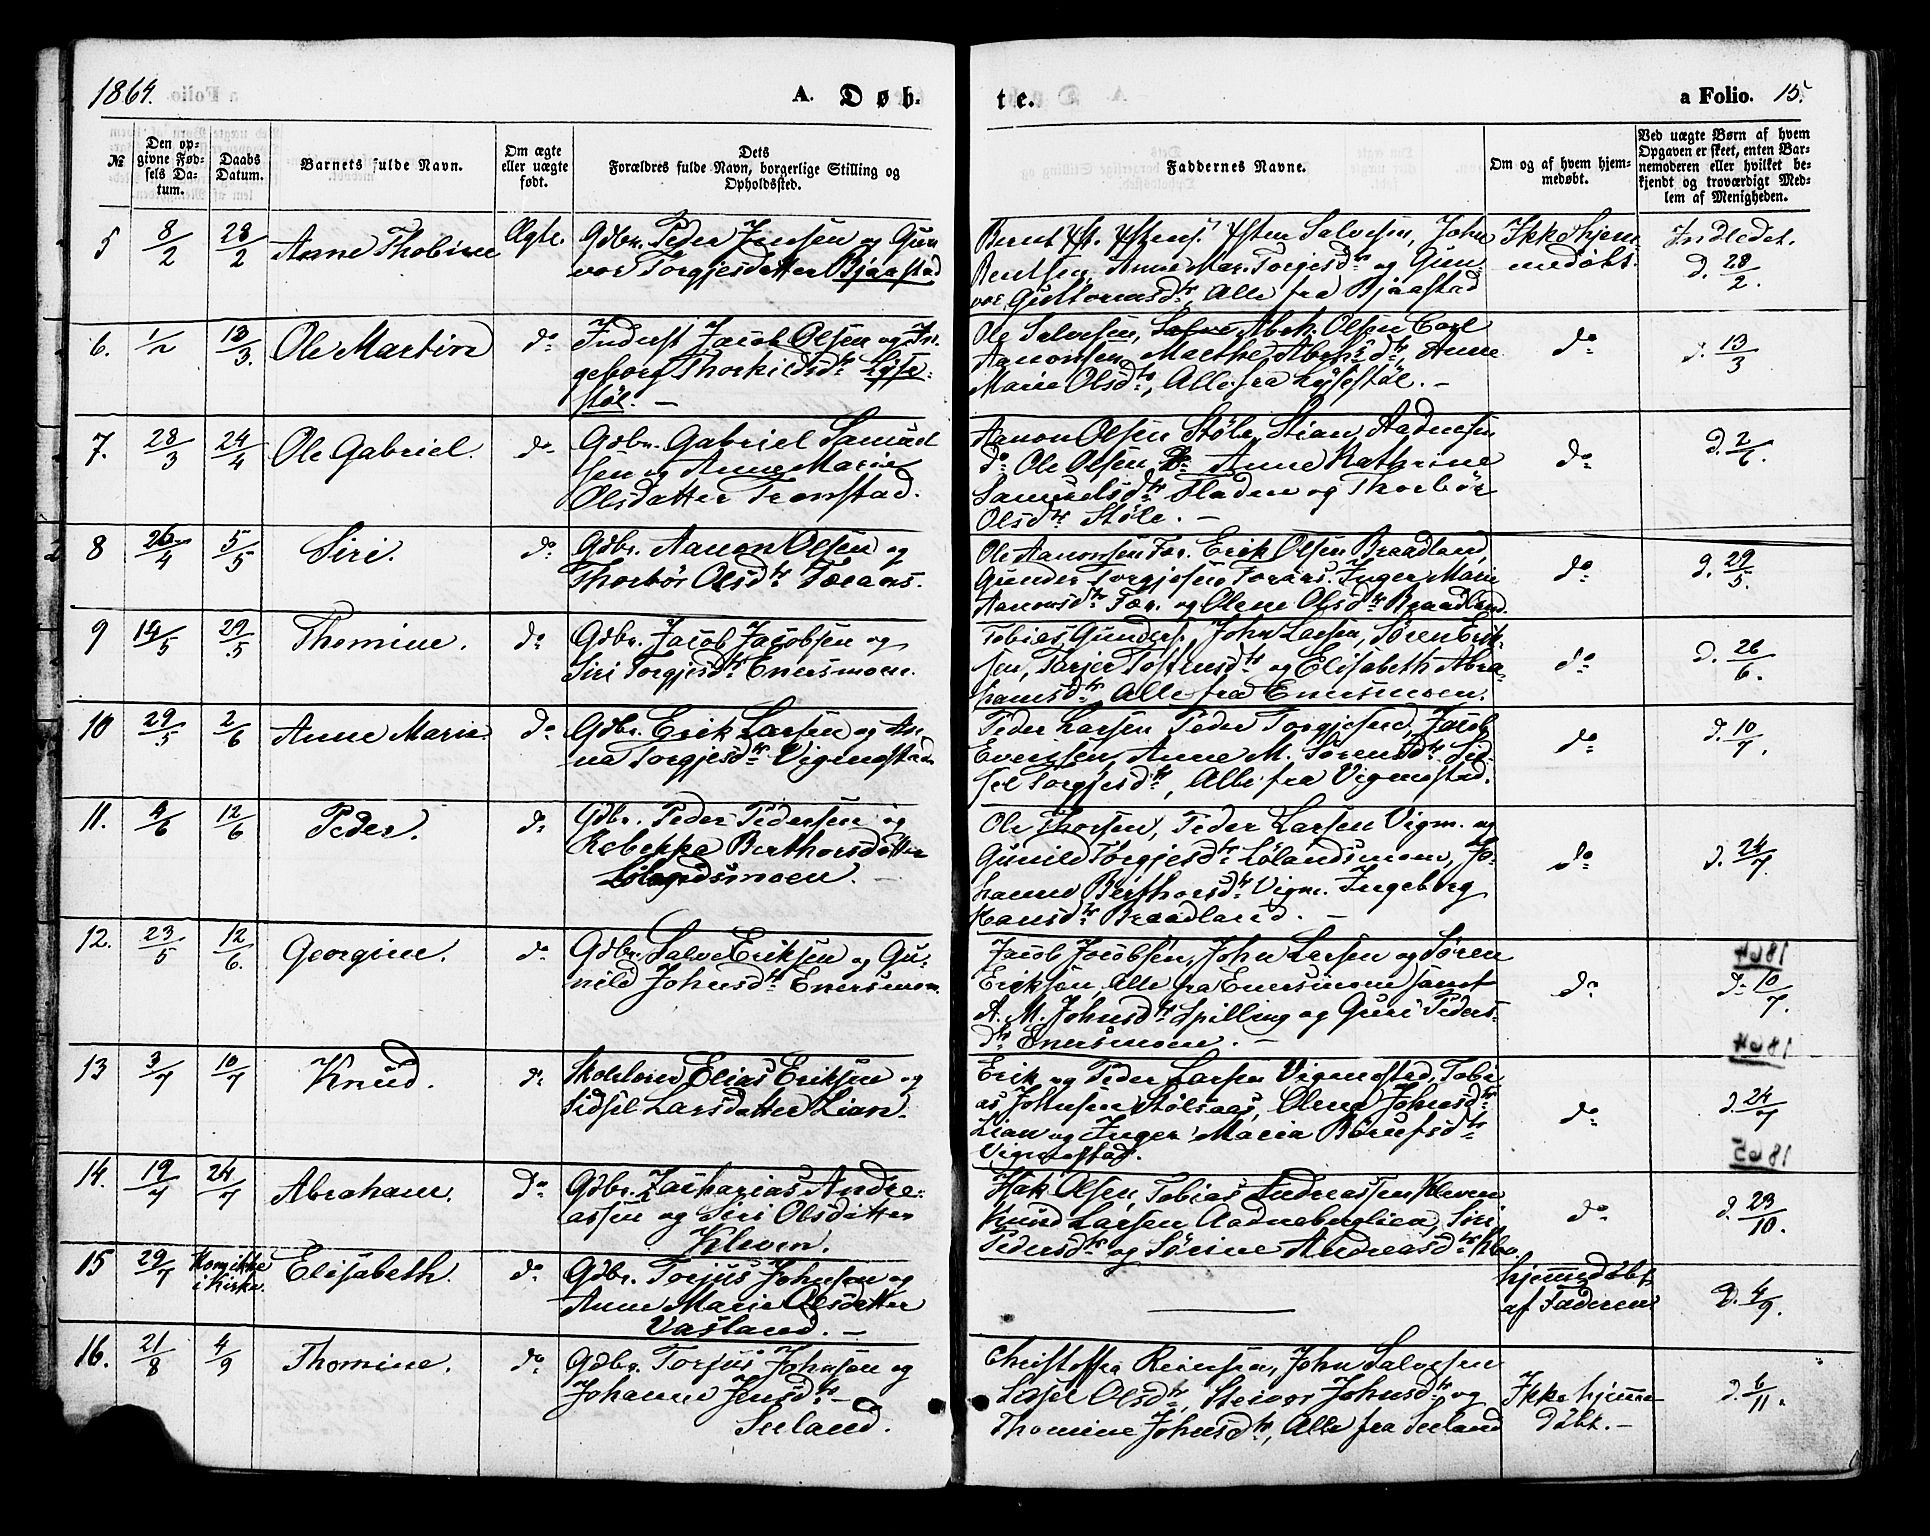 1864.
A. Døb-
te.
a Folio. 15.
№
Den op-
givne Fød-
sels Da-
tum.
Daabs
Datum.
Barnets fulde Navn.
Om ægte
eller uægte
født.
Dets
Forældres fulde Navn, borgerlige Stilling og
Opholdssted.
Faddernes Navne.
Om og af hvem hjem-
medøbt.
Ved uægte Børn af hvem
Opgaven er skeet, enten Bar-
nemoderen eller hvilket be-
kjendt og troværdigt Med-
lem af Menigheden.
5 8/2 28/2 Anne Thobine Ægte.
Gdbr. Peder Jensen og Gun
vor Torgjesdatter Bjaastad
Bernt Yst. Ystens. Ysten Salvesen, John
Bentsen, Anne Mar. Torgjesdtr og Gun
vor Guttormsdtr, Alle fra Bjaastad
Ikke hjem
medøbt.
Indledet.
d. 28/2.
6. 1/2 13/3. Ole Martin do
Inderst Jacob Olsen og In
geborg Thorkildsdtr Lyse-
støl. —
Ole Salvesen, Abrh. Olsen Carl
Aanonsen, Marthe Abrhsdtr, Anne
Marie Olsdtr, Alle fra Lysestøl. —
do
d. 13/3
7. 28/3 24/4 Ole Gabriel. do
Gdbr. Gabriel Samuel
sen og Anne Marie
Olsdatter Tronstad.
Aanon Olsen Støle, Stian Aadnesen
do Ole Olsen do Anne Kathrine
Samuelsdtr Fladen og Thorbør
Olsdtr Støle. —
do
d. 2/6.
8 26/4 5/5 Siri. do
Gdbr. Aanon Olsen og
Thorbør Olsdtr Foraas.
Ole Aanonsen For. Erik Olsen Braadland,
Gunder Torgjesen Foraas. Inger Marie
Aanonsdtr For. og Olene Olsdtr Braadland.
do
d. 29/5.
9 14/5 29/5 Thomine. do
Gdbr. Jacob Jacobsen og
Siri Torgjesdtr Enersmoen.
Tobias Gunders. John Larsen, Søren Erik-
sen, Tarjer Tostensdtr og Elisabeth Abra-
hamsdtr Alle fra Enersmoen.
do
d. 26/6.
10 29/5 2/6 Anne Marie. do
Gdbr. Erik Larsen og An
na Torgjesdtr Vigmostad
Peder Larsen Peder Torgjesen, Jacob
Evertsen, Anne M. Sørensdtr Sid
sel Torgjesdtr, Alle fra Vigmostad.
do
d. 10/7.
11. 4/6 12/6 Peder. do
Gdbr. Peder Pedersen og
Rebekka Berthorsdatter
Lølandsmoen. —
Ole Thorsen, Peder Larsen Vigm. og
Gunild Torgjesdtr Lølandsmoen, Jo-
hanne Berthorsdtr Vigm. Ingeborg
Hansdtr Braadland. —
do
d. 24/7.
12. 23/5 12/6. Georgine. do
Gdbr. Salve Eriksen og Gu-
nild Johnsdtr Enersmoen.
Jacob Jacobsen, John Larsen og Søren
Eriksen, Alle fra Enersmoen samt
A. M. Johnsdtr Spilling og Guri Peders-
dtr Enersmoen. —
do
d. 10/7.
13 3/7 10/7 Knud. do
Skolelærer Elias Eriksen og
Sidsel Larsdatter Lian.
Erik og Peder Larsen Vigmostad, Tobi-
as Johnsen Stølsaas, Olene Johnsdtr
Lian og Inger Maria Børufsdtr
Vigmostad.
do
d. 24/7
14. 19/7 24/7 Abraham. do
Gdbr. Zacharias Andre-
assen og Siri Olsdatter
Kleven.
Isak Olsen Tobias Andreassen Kleven
Knud Larsen Aadneberglien, Siri
Pedersdtr og Sørine Andreasdtr Klev.
do
d. 23/10.
15 29/7 Kom ikke
i Kirke. Elisabeth. do
Gdbr. Torjus Johnsen og
Anne Marie Olsdatter
Vasland. —
hjemmedøbt
af Faderen
d. 4/9.
16. 21/8 4/9 Thomine. do
Gdbr. Torjus Johnsen og
Johanne Jensdtr —
Seeland.
Christoffer Reiersen, John Salvesen
Sissel Olsdtr, Steivor Johnsdtr og
Thomine Johnsdtr, Alle fra Seeland
Ikke hjemme
døbt. —
d. 6/11.